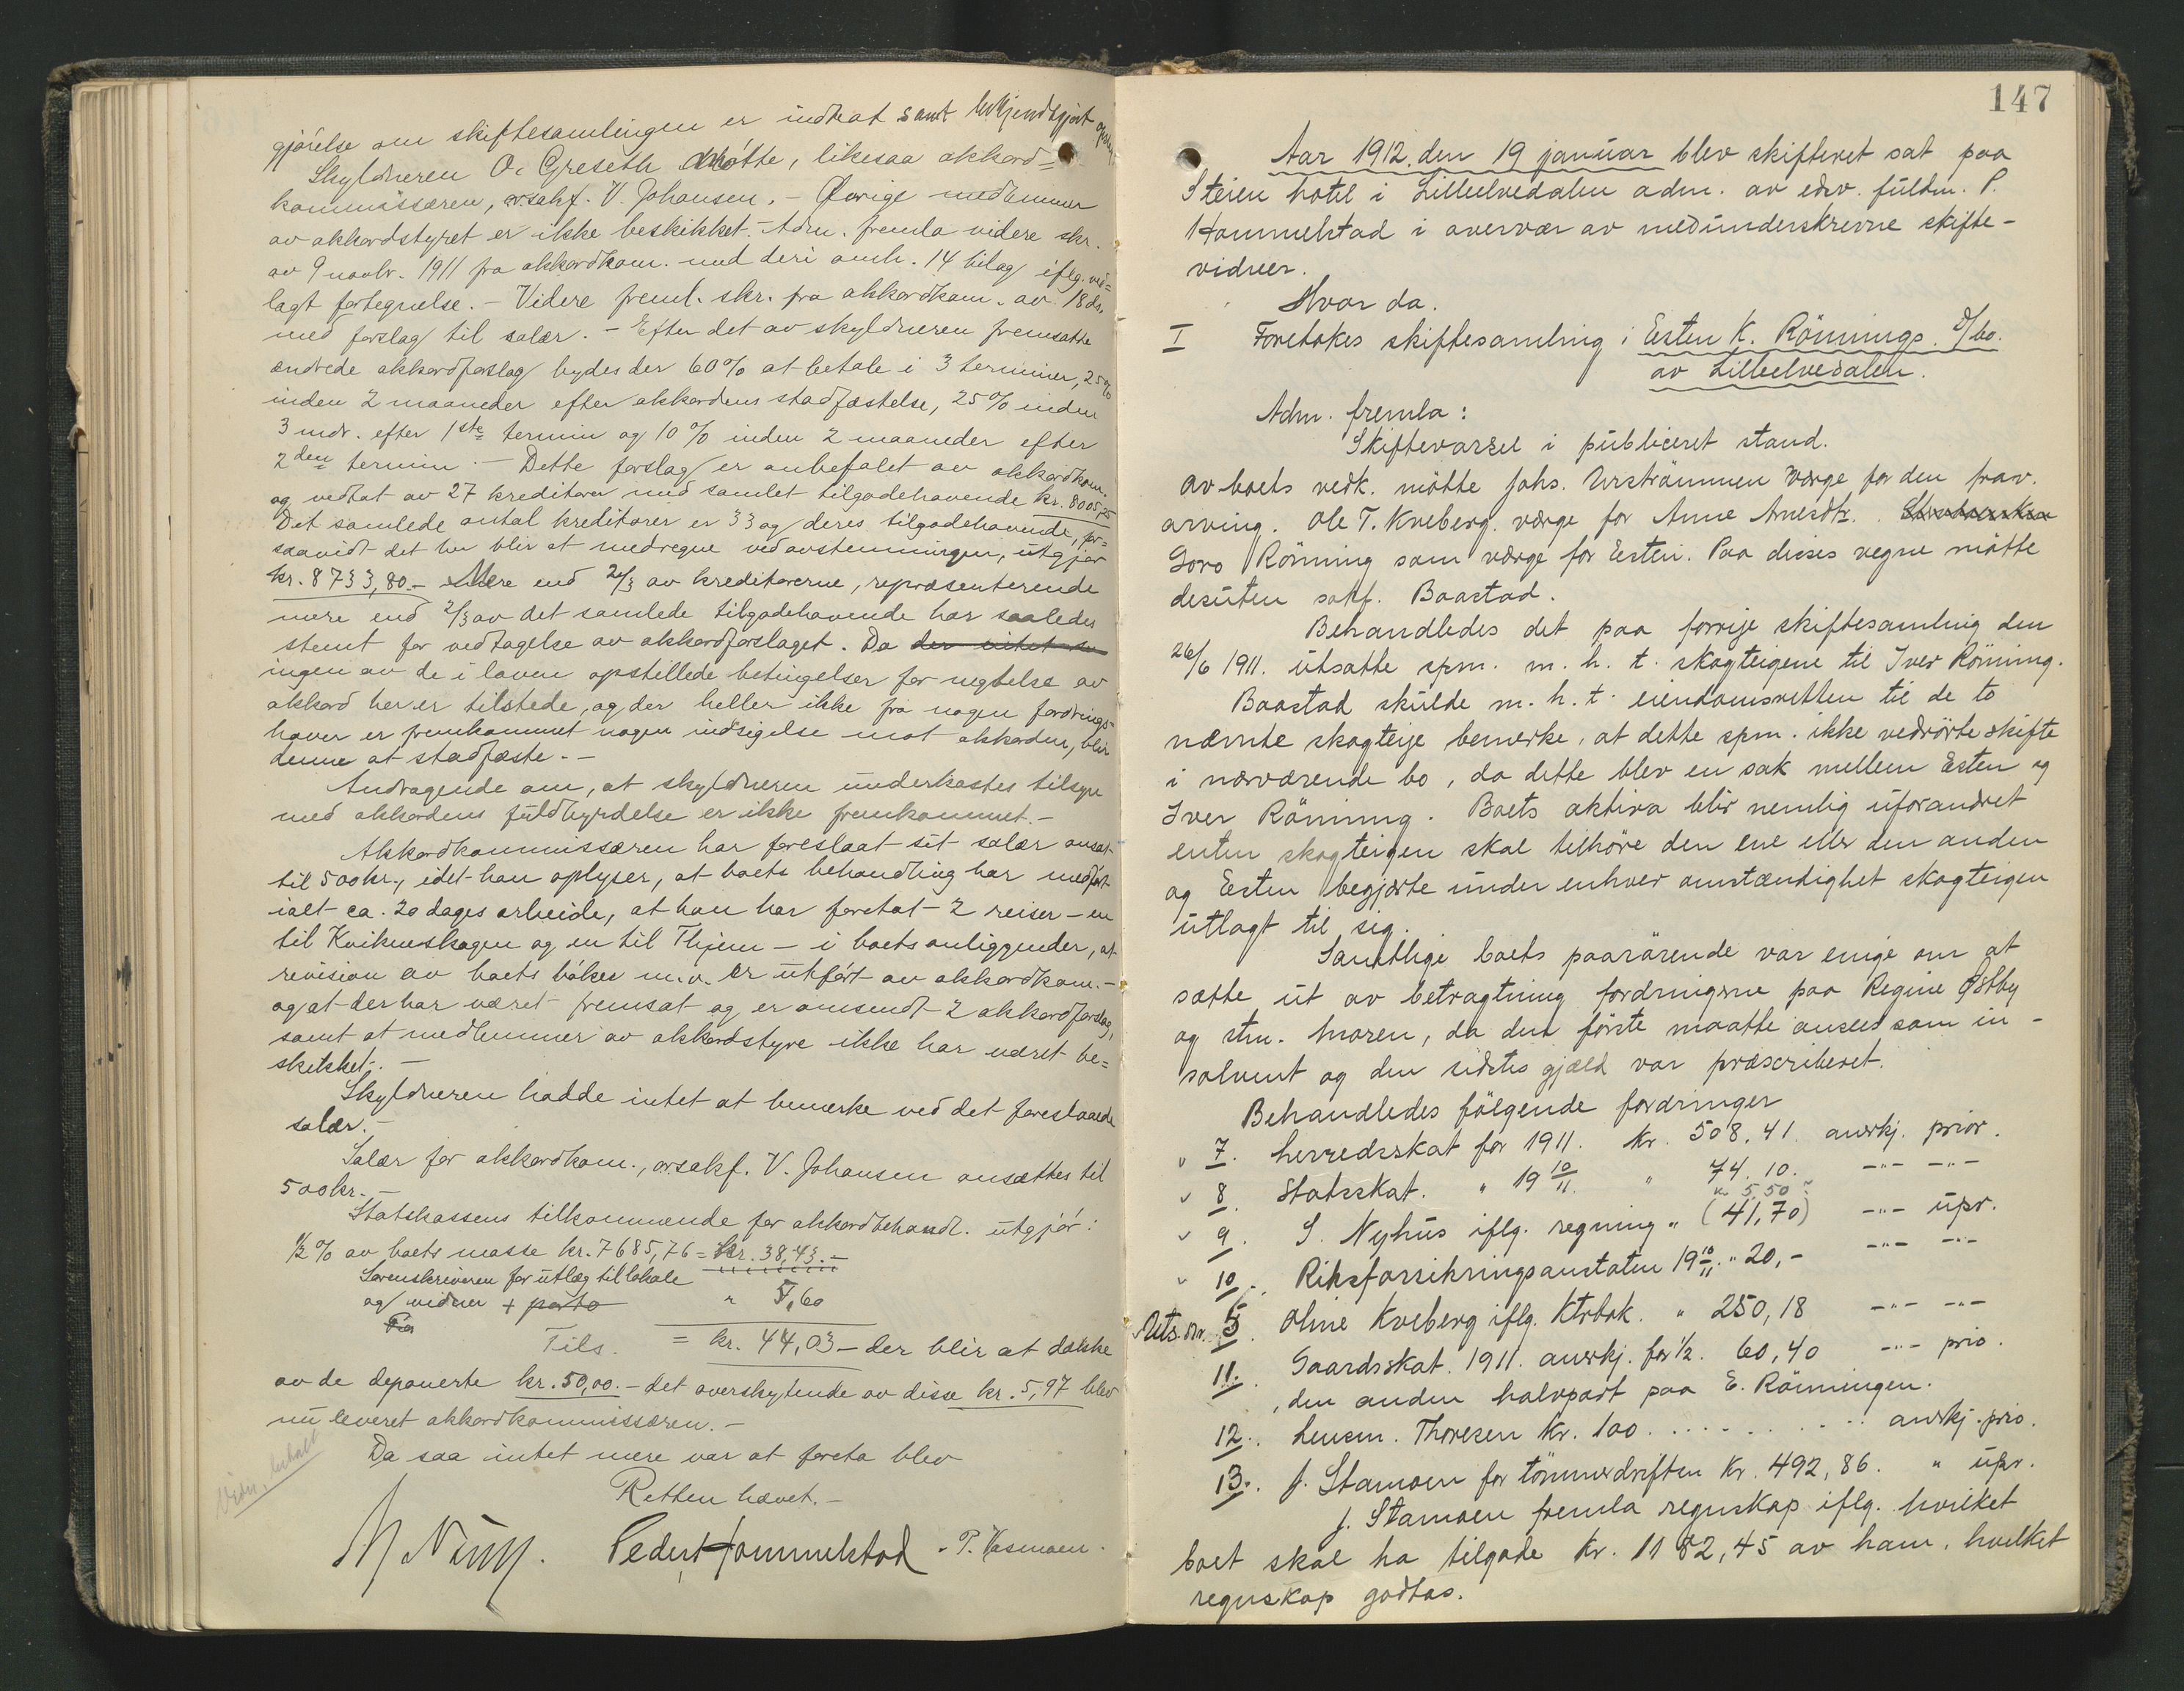 gjørelse om skiftesamlingen er indtat samt bekjendtgjørt
Skyldneren O. Greseth møtte, likesaa akkord=
kommissæren, o.r.sakf. V. Johansen. – Øvrige medlemmer
av akkordstyret er ikke beskikket. – Adm. fremla videre skr.
av 9 novbr. 1911 fra akkordkom. med deri omh. 14 bilag iflg. ved=
lagt fortegnelse. – Videre freml. skr. fra akkordkom. av 18 ds.
med forslag til salær. – Efter det av skyldneren fremsatte
ændrede akkordforslag bydes der 60% at betale i 3 terminer, 25%
inden 2 maaneder efter akkordens stadfæstelse, 25% inden
3 mdr. efter 1ste termin og 10% inden 2 maaneder efter
2den termin. – Dette forslag er anbefalet av akkordkom.
og vedtat av 27 kreditorer med samlet tilgodehavende kr. 8005,25
Det samlede antal kreditorer er 33 og deres tilgodehavende, for=
saavidt det her blir at medregne ved avstemningen, utgjør
kr. 8733,80. – Mere end 2/3 av kreditorerne, repræsenterende
mere end 2/3 av det samlede tilgodehavende har saaledes
stemt for vedtagelse av akkordforslaget. Da
ingen av de i loven opstillede betingelser for negtelse av
akkord her er tilstede, og der heller ikke fra nogen fordrings=
haver er fremkommet nogen indsigelse mot akkorden, blir
denne at stadfæste. –
Andragende om, at skyldneren underkastes tilsyn
med akkordens fuldbyrdelse er ikke fremkommet. –
Akkordkommissæren har foreslaat sit salær ansat
til 500 kr., idet han oplyser, at boets behandling har medført
ialt ca. 20 dages arbeide, at han har foretat 2 reiser – en
til Kvikneskogen og en til Thjem – i boets anliggender, at
revision av boets bøker m.v. er utført av akkordkom. –
og at der har været fremsat og er omsendt 2 akkordforslag,
samt at medlemmer av akkordstyre ikke har været be=
skikket. –
Skyldneren hadde intet at bemerke ved det foreslaaede
salær. –
Salær for akkordkom., o.r.sakf. V. Johansen ansættes til
500 kr. –
Statskassens tilkommende for akkordbehandl. utgjør:
½ % av boets masse kr. 7685,76 = kr. 38,43. –
Sorenskriveren for utlæg til lokale
og vidner + porto " 5,60
Tils. = kr. 44,03 – der blir at dække
av de deponerte kr. 50,00. – det overskytende av disse kr. 5,97 blev
nu leveret akkordkommissæren. –
Da saa intet mere var at foreta blev
Retten hævet. –
Peder Hommelstad. P. Væsmoen.
147
Aar 1912. den 19 januar blev skifteret sat paa
Steien hotel i Lilleelvedalen adm. av edsv. fuldm. P.
Hommelstad i overvær av medunderskrevne skifte-
vidner.
Hvor da.
I Foretokes skiftesamling i Esten K. Rönnings d/bo.
av Lilleelvedalen.
Adm. fremla:
Skiftevarsel i publiceret stand.
Av boets vedk. mötte Johs. Urströmmen værge for den frav.
arving. Ole T. Kveberg. værge for Anne Arnesdtr.
Goro Rönning som værge for Esten. Paa dieses vegne mötte
desuten sakf. Baastad.
Behandledes det paa forrige skiftesamling den
26/6 1911. utsatte spm. m. h. t. skogteigene til Iver Rönning.
Baastad skulde m. h. t. eiendomsretten til de to
nævnte skogteige bemerke, at dette spm. ikke vedrörte skifte
i nærværende bo, da dette blev en sak mellem Esten og
Iver Rönning. Boets aktiva blir nemlig uforandret
enten skogteigen skal tilhöre den ene eller den anden
og Esten begjærte under enhver omstændighet skogteigen
utlagt til sig.
Samtlige boets paarörende var enige om at
sætte ut av betragtning fordringerne paa Regine Østby
og stm. moren, da den förste maatte ansees som in-
solvent og den sidstes gjæld var præscriberet.
Behandledes fölgende fordringer
7. Herredsskat for 1911. kr. 508,41. anerkj. prior.
8. Statsskat. " 19 10/11. " 74.10. -"- -"-
kr. 5,50
9. S. Nyhus iflg. regning " (41,70) -"- upr.
10. Riksforsikringsanstalten 19 10/11. " 20,- -"- -"-
Uts. nr. 5. Oline Kveberg iflg. Ktrbok. " 250,18 -"- -"-
11. Gaardsskat. 1911. anerkj. for ½. 60,40 -"- prio.
, den anden halvpart paa E. Rönningen.
12. Lensm. Thoresen kr. 100. . . . . . . . anerkj. prio.
13. J. Stamoen for tömmerdriften kr. 492,86. " upr.
J. Stamoen fremla regnskap iflg. hvilket
boet skal ha tilgode kr. 1182,45 av ham, hvilket
regnskap godtas.